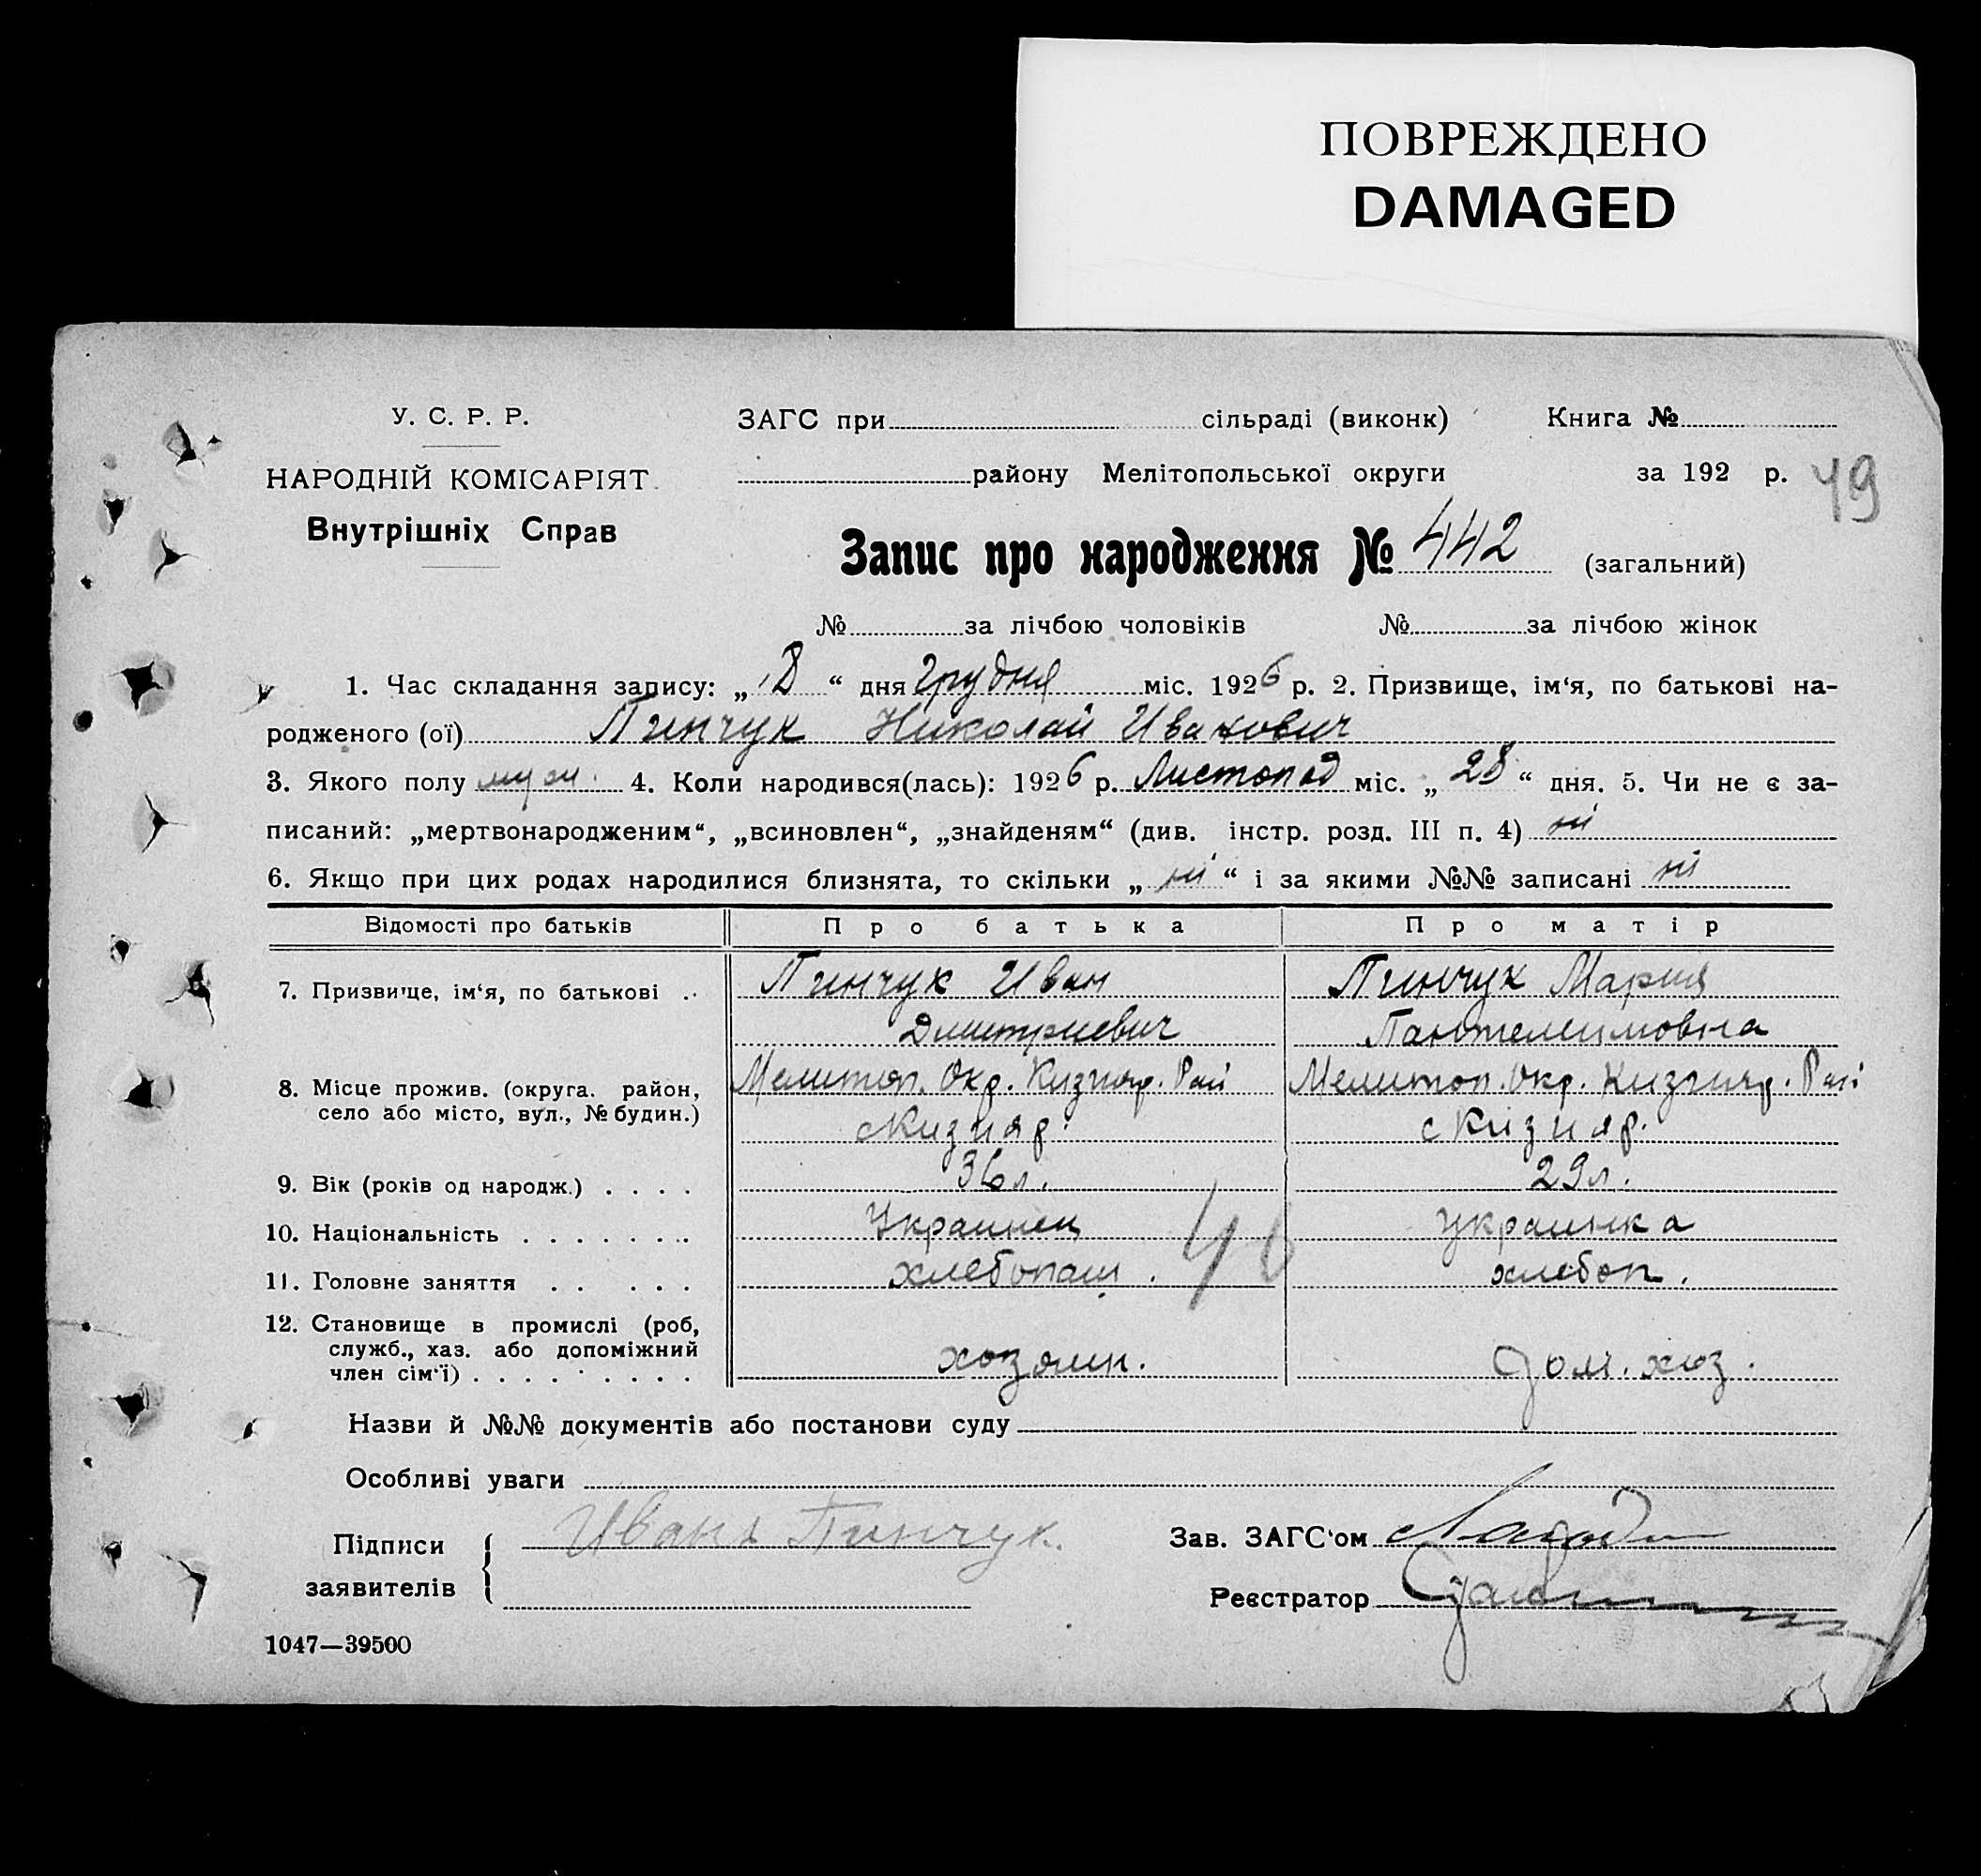 ПОВРЕЖДЕНО
DAMAGED
У. С. Р. Р.
НАРОДНІЙ КОМІСАРІЯТ
Внутрішніх Справ
ЗАГС при сільраді (виконк) Книга №
району Мелітопольської округи за 192 р. 49
Запис про народження № 442 (загальний)
№ за лічбою чоловіків № за лічбою жінок
1. Час складання запису: „ 8 “ дня Грудня міс. 1926 р. 2. Призвище, ім‘я, по батькові на-
родженого (ої) Пинчук Николай Иванович
3. Якого полу муж. 4. Коли народився(лась): 1926 р. Листопад міс. „ 28 “ дня. 5. Чи не є за-
писаний: „мертвонародженим“, „всиновлен“, „знайденям“ (див. інстр. розд. III п. 4) ні
6. Якщо при цих родах народилися близнята, то скільки „ ні “ і за якими №№ записані ні
Відомості про батьків Про батька Про матір
7. Призвище, ім‘я, по батькові . . Пинчук Иван Пинчук Мария
Дмитриевич Пантелимовна
8. Місце прожив. (округа. район, Мелитоп. Окр. Кизияр. Рай Мелитоп. Окр. Кизияр. Рай
село або місто, вул., № будин.) с Кизияр. с Кизияр.
9. Вік (років од народж.) . . . . 36 л. 29 л.
10. Національність . . . . . . . . Украинец украинка
11. Головне заняття . . . . . хлебопаш. 40 хлебоп.
12. Становище в промислі (роб,
служб., хаз. або допоміжний
член сім‘ї) . . . . . . . . . . хозяин. дом. хоз.
Назви й №№ документів або постанови суду
Особливі уваги
Підписи Иванъ Пинчук. Зав. ЗАГС‘ом
заявителів Реєстратор
1047—39500